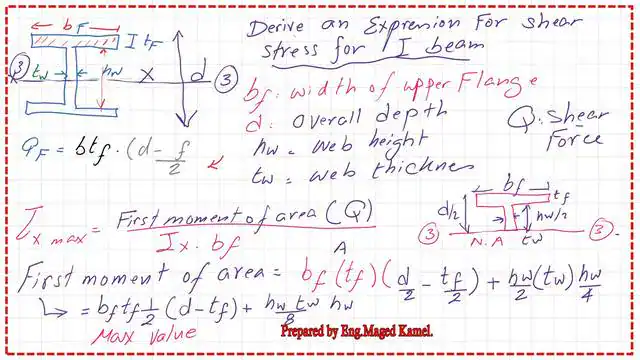 Derive an Expression For shear
stress for I beam
bf
tf
tw
hw
X
d
3
3
bf: width of upper Flange
d: Overall depth
hw = web height
tw = web thicknes
Q: shear
Force
QF = btf · (d - f/2
bf
tf
d/2
hw/2
tw
N.A
3
3
τx max = First moment of area (Q) / Ix · bf
A
First moment of area = bf (tf) (d/2 - tf/2) + hw/2 (tw) hw/4
↳ = bf tf 1/2 (d - tf) + hw tw/8 hw
Max value
Prepared by Eng.Maged Kamel.